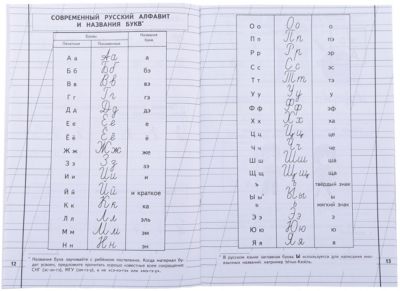 СОВРЕМЕННЫЙ РУССКИЙ АЛФАВИТ
И НАЗВАНИЯ БУКВ*
Буквы Название букв
Печатные Письменные
А а А а а
Б б Б б бэ
В в В в вэ
Г г Г г гэ
Д д Д д дэ
Е е Е е е
Ё ё Ё ё ё
Ж ж Ж ж же
З з З з зэ
И и И и и
Й й Й й и краткое
К к К к ка
Л л Л л эль
М м М м эм
Н н Н н эн
* Названия букв заучивайте с ребёнком постепенно. Когда материал бу-
дет усвоен, предложите прочитать хорошо известные всем сокращения:
12
О о О о о
П п П п пэ
Р р Р р эр
С с С с эс
Т т Т т тэ
У у У у у
Ф ф Ф ф эф
Х х Х х ха
Ц ц Ц ц це
Ч ч Ч ч че
Ш ш Ш ш ша
Щ щ Щ щ ща
ъ ъ твёрдый знак
Ы ы* Ы ы ы
ь ь мягкий знак
Э э Э э э
Ю ю Ю ю ю
Я я Я я я
* В русском языке заглавная буква Ы используется для написания ино-
язычных названий: например Ытык-Кюёль.
13